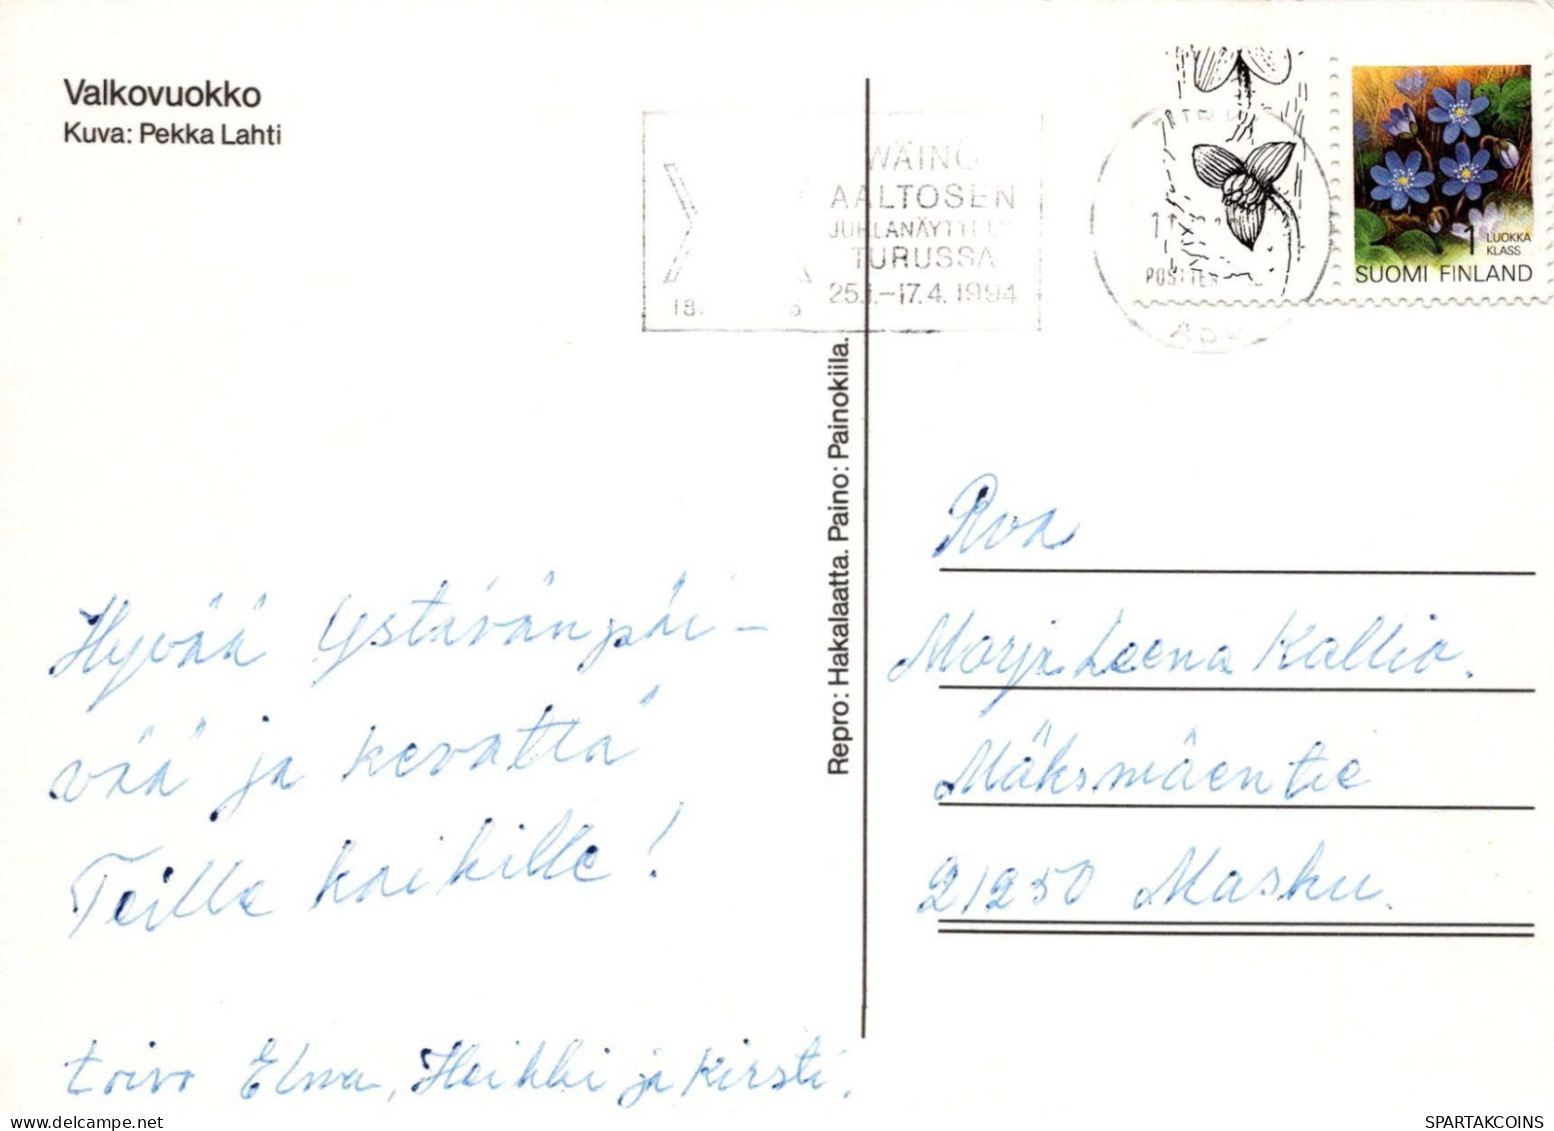 Valkovuokko
Kuva: Pekka Lahti
WÄINÖ
AALTOSEN
JUHLANÄYTTELY
TURUSSA
25.1.–17.4. 1994
1 LUOKKA
KLASS
SUOMI FINLAND
Repro: Hakalaatta. Paino: Painokiila.
Hyvää Ystävänpäi-
vää ja kevättä
Teille kaikille!
toivo Elma, Heikki ja Kirsti.
Rva
Marja Leena Kallio.
Mäksmäentie
21250 Masku.
SPARTAKCOINS